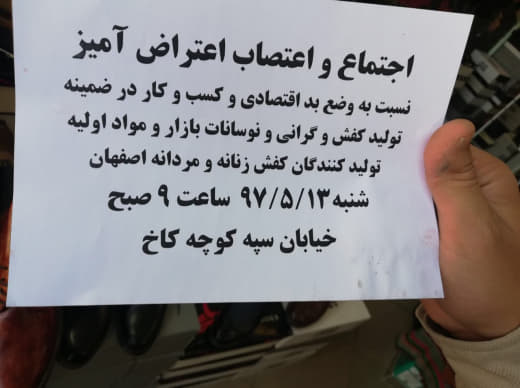 اجتماع و اعتصاب اعتراض آمیز
نسبت به وضع بد اقتصادی و کسب و کار در ضمینه
تولید کفش و گرانی و نوسانات بازار و مواد اولیه
تولید کنندگان کفش زنانه و مردانه اصفهان
شنبه ۹۷/۵/۱۳ ساعت ۹ صبح
خیابان سپه کوچه کاخ